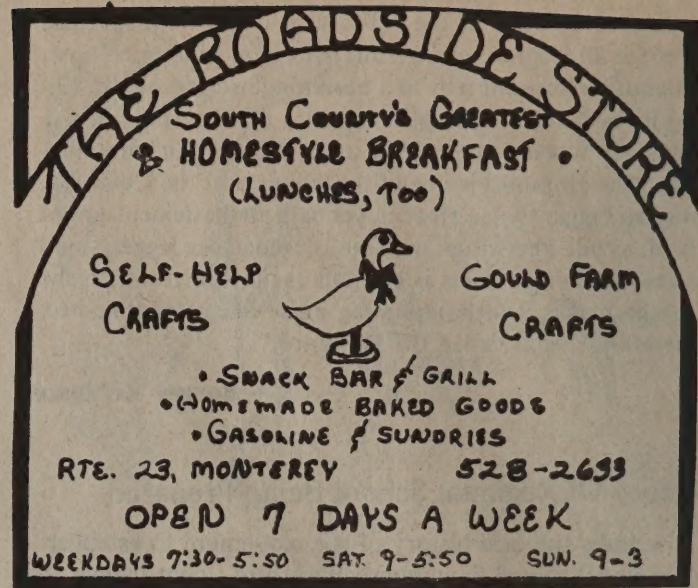 THE ROADSIDE STORE
SOUTH COUNTY'S GREATEST
& HOMESTYLE BREAKFAST •
(LUNCHES, TOO)
SELF-HELP GOULD FARM
CRAFTS CRAFTS
• SNACK BAR & GRILL
• HOMEMADE BAKED GOODS
• GASOLINE & SUNDRIES
RTE. 23, MONTEREY 528-2633
OPEN 7 DAYS A WEEK
WEEKDAYS 7:30-5:50 SAT. 9-5:50 SUN. 9-3